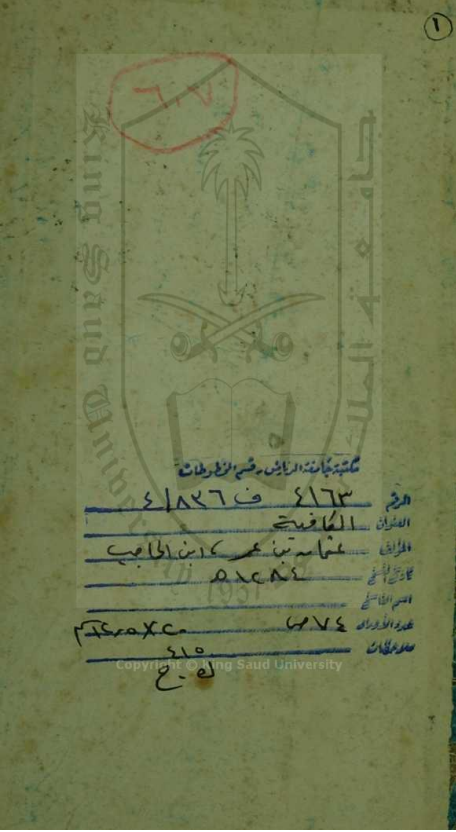 ١
٦٠٧
King Saud University
مكتبة جامعة الرياض - قسم المخطوطات
الرقم ٤١٦٣ ف ٨٣٦/٤
العنوان الكافية
المؤلف عثمان بن عمر، ابن الحاجب
تاريخ النسخ ١٢٨٤هـ
اسم الناسخ
عدد الأوراق ٧٤ ص
ملاحظات
٤١٥
Copyright © King Saud University
1957